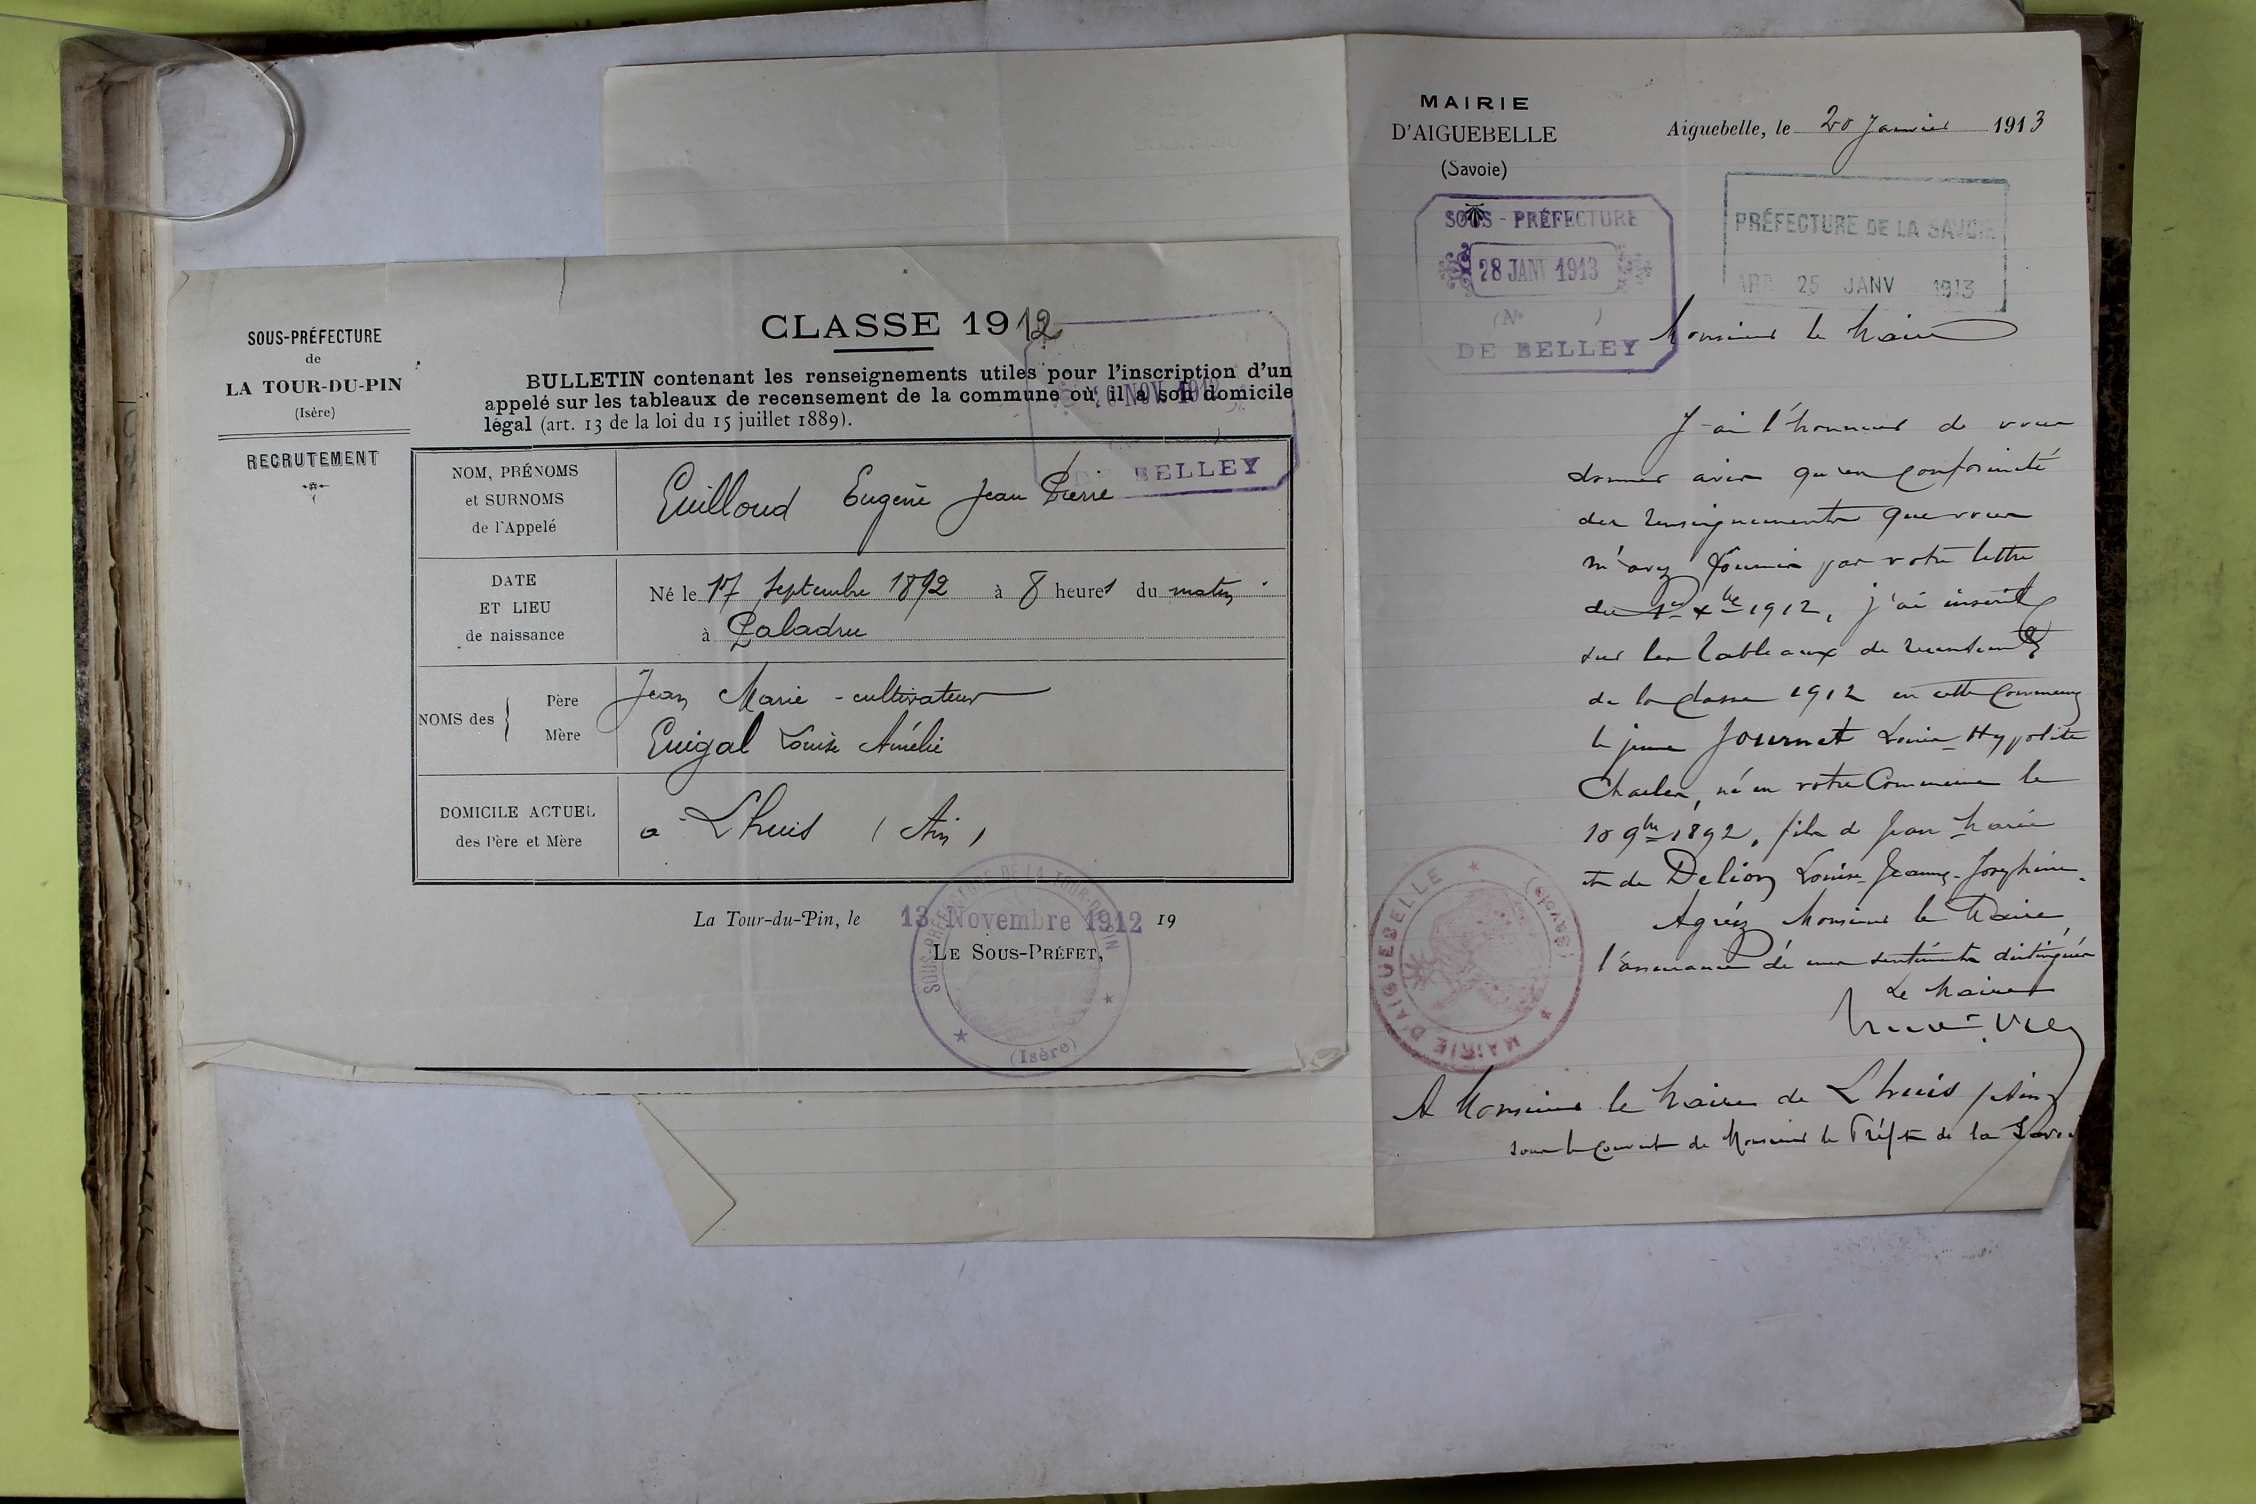 SOUS-PRÉFECTURE
de
LA TOUR-DU-PIN
(Isère)
RECRUTEMENT
CLASSE 1912
BULLETIN contenant les renseignements utiles pour l'inscription d'un
appelé sur les tableaux de recensement de la commune où il a son domicile
légal (art. 13 de la loi du 15 juillet 1889).
NOV. 1912
DE BELLEY
NOM, PRÉNOMS
et SURNOMS
de l'Appelé
Guilloud Eugène Jean Pierre
DATE
ET LIEU
de naissance
Né le 17 Septembre 1892 à 8 heures du matin
à Paladru
NOMS des
Père
Jean Marie - cultivateur
Mère
Guigal Louise Amélie
DOMICILE ACTUEL
des Père et Mère
à Lhuis (Ain)
La Tour-du-Pin, le 13 Novembre 1912 19
LE SOUS-PRÉFET,
SOUS-PRÉFECTURE DE LA TOUR-DU-PIN
(Isère)
MAIRIE
D'AIGUEBELLE
(Savoie)
Aiguebelle, le 20 Janvier 1913
SOUS-PRÉFECTURE
28 JANV 1913
(No )
DE BELLEY
PRÉFECTURE DE LA SAVOIE
ARR 25 JANV 1913
Monsieur le Maire
J'ai l'honneur de vous
donner avis qu'en conformité
des renseignements que vous
m'avez fournis par votre lettre
du 1er Xbre 1912, j'ai inscrit
sur les tableaux de recensement
de la classe 1912 en cette Commune
le jeune Journet Louis-Hypolite
Charles, né en votre Commune le
10 9bre 1892, fils d Jean Marie
et de Delion Louise-Jeanne-Joséphine.
Agréez Monsieur le Maire,
l'assurance de mes sentiments distingués
Le Maire
A Monsieur le Maire de Lhuis (Ain)
sous le couvert de Monsieur le Préfet de la Savoie
MAIRIE D'AIGUEBELLE
(Savoie)